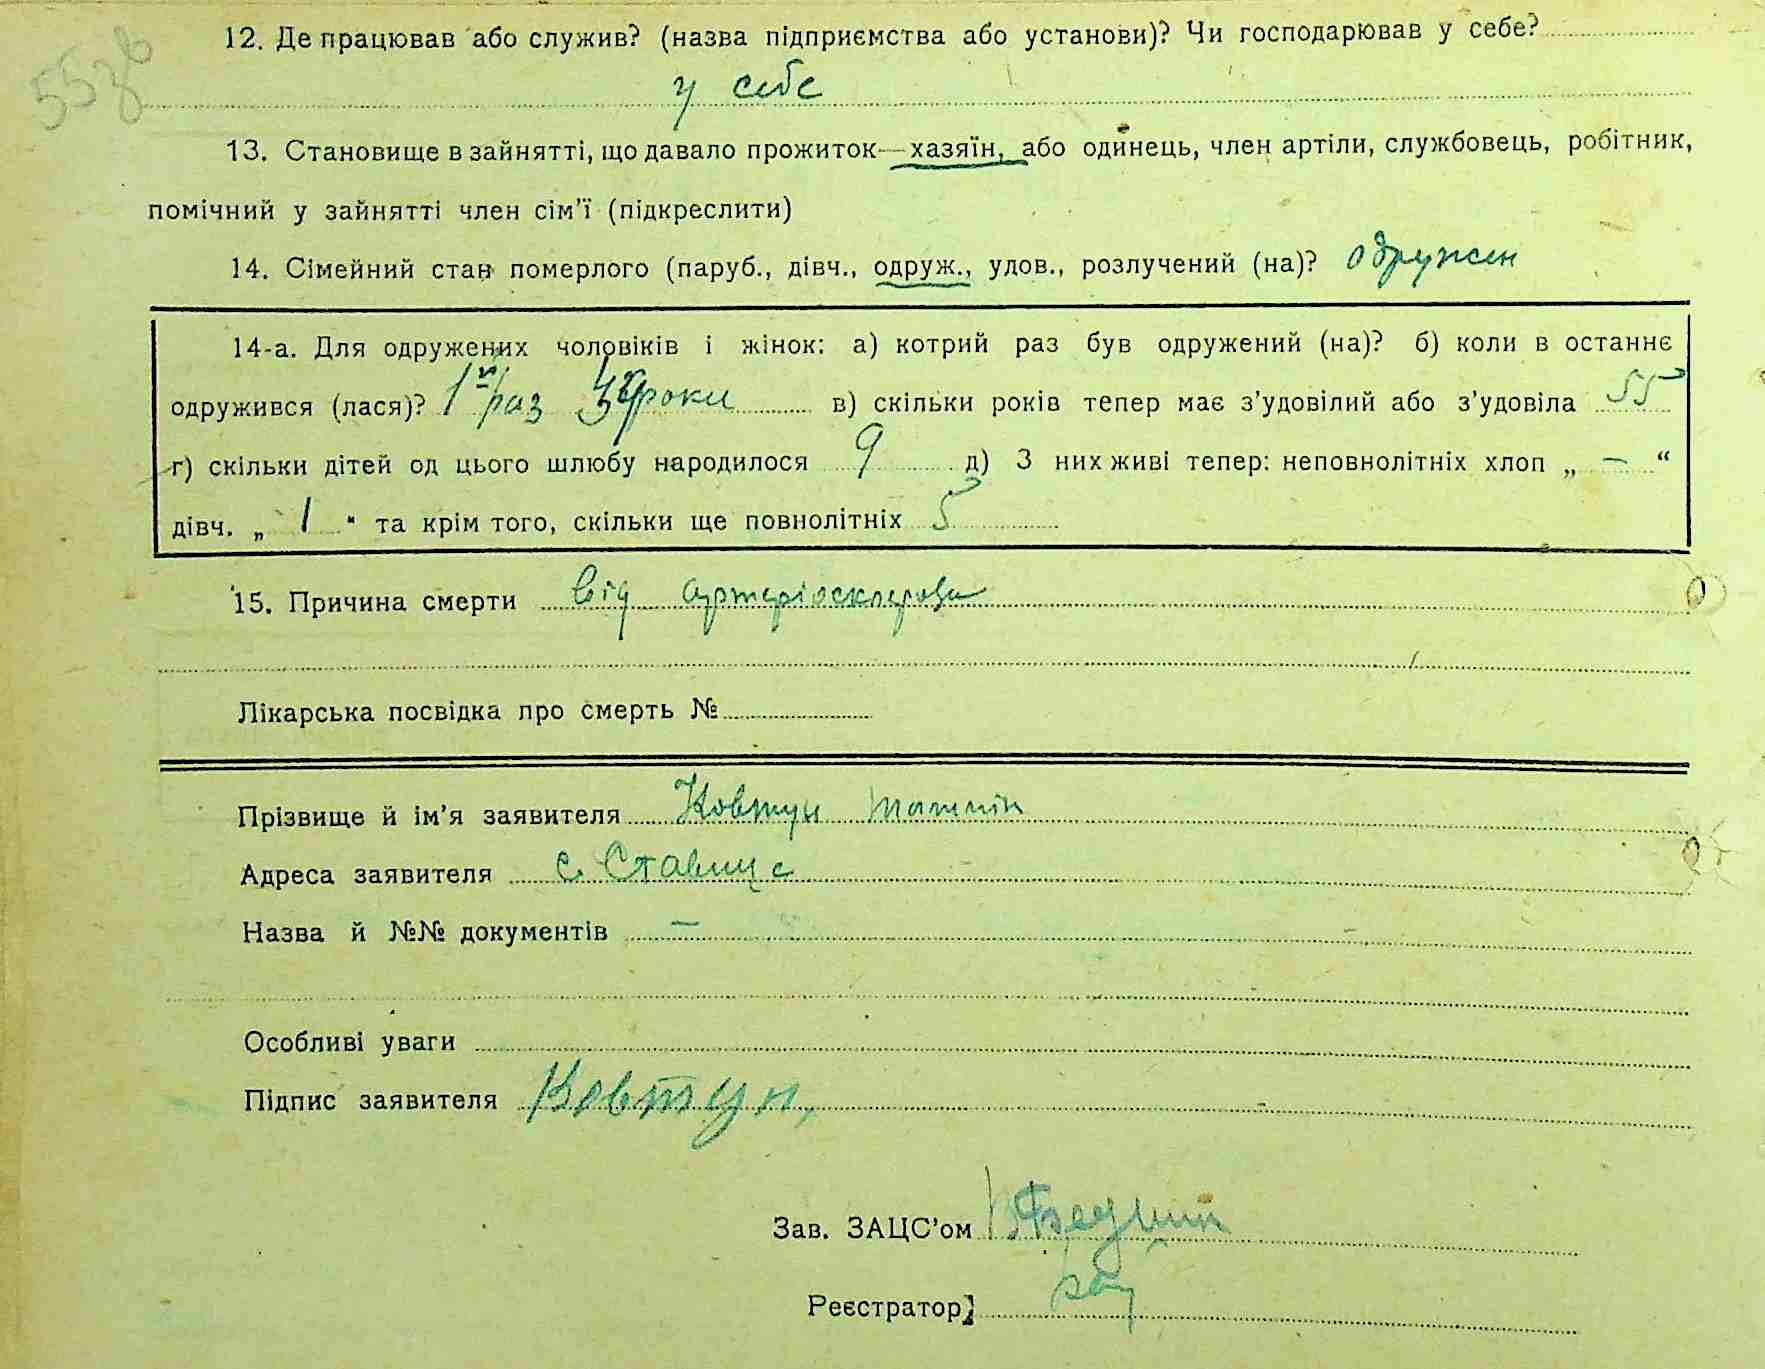 12. Де працював або служив? (назва підприємства або установи)? Чи господарював у себе?
у себе
13. Становище в зайнятті, що давало прожиток—хазяїн, або одинець, член артіли, службовець, робітник,
помічний у зайнятті член сім'ї (підкреслити)
14. Сімейний стан померлого (паруб., дівч., одруж., удов., розлучений (на)? одружен
14-а. Для одружених чоловіків і жінок: а) котрий раз був одружений (на)? б) коли в останнє
одружився (лася)? 1й раз роки в) скільки років тепер має з'удовілий або з'удовіла 55
г) скільки дітей од цього шлюбу народилося 9 д) З них живі тепер: неповнолітніх хлоп „ — “
дівч. „ 1 “ та крім того, скільки ще повнолітніх 5
15. Причина смерти від артеріосклероза
Лікарська посвідка про смерть №
Прізвище й ім'я заявителя Ковтун
Адреса заявителя с. Ставище
Назва й №№ документів —
Особливі уваги
Підпис заявителя Ковтун
Зав. ЗАЦС'ом
Реєстратор